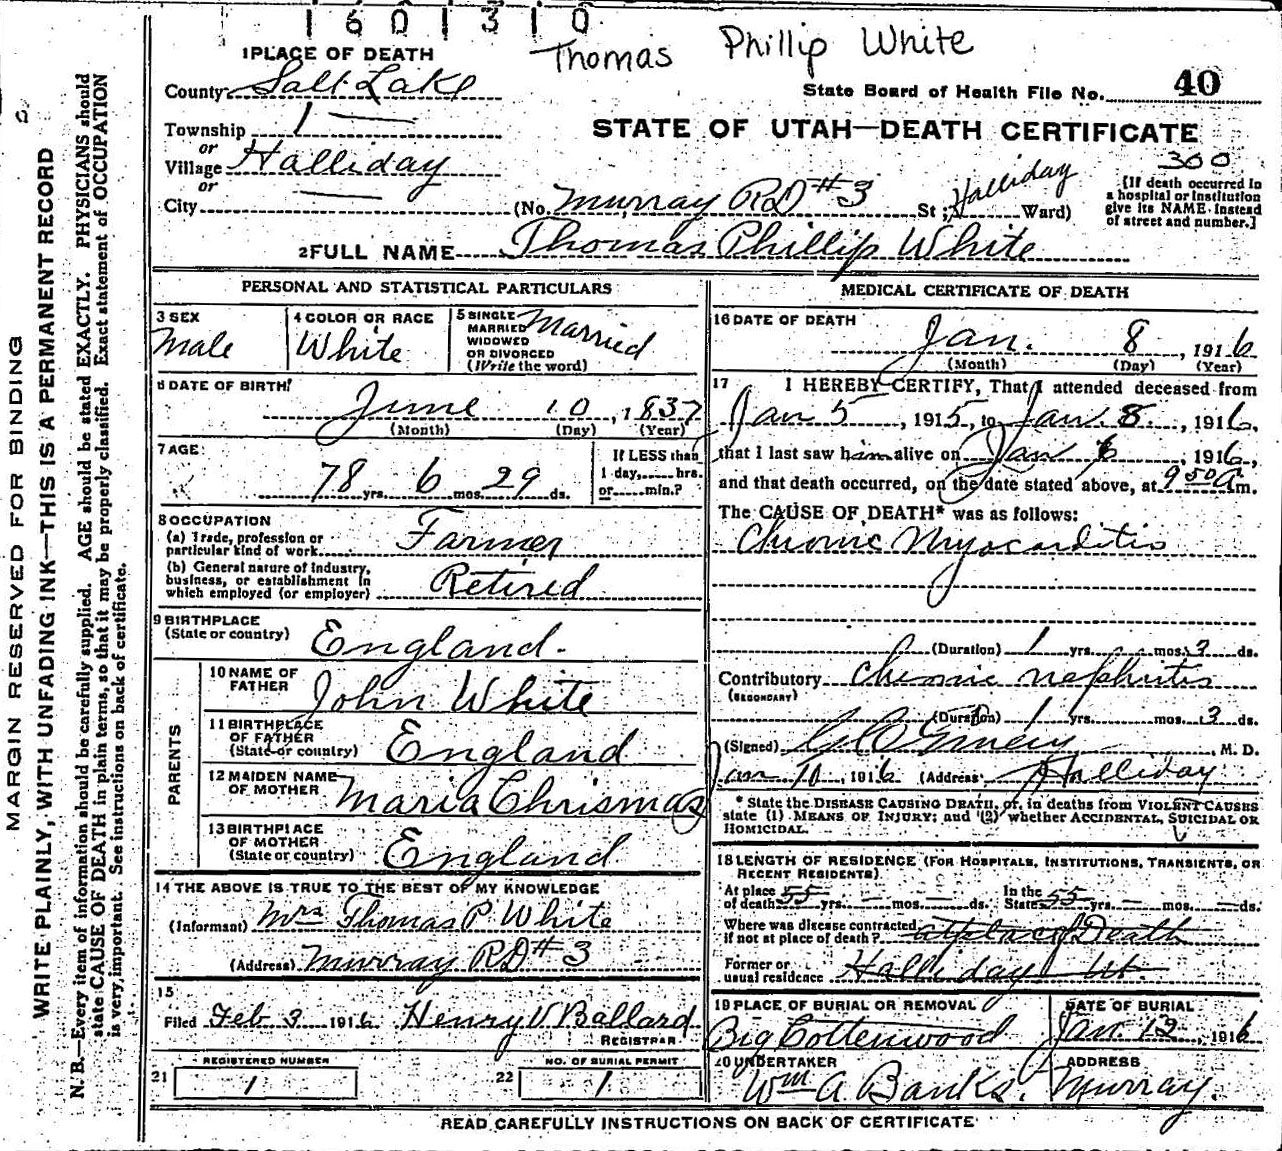 1601310
Thomas Phillip White
1 PLACE OF DEATH
County Salt Lake
State Board of Health File No. 40
Township 1 —
STATE OF UTAH—DEATH CERTIFICATE
or
Village Halliday
300
or
City —
(No. Murray RD #3 St; Halliday Ward)
[If death occurred in
a hospital or institution
give its NAME instead
of street and number.]
2 FULL NAME Thomas Phillip White
PERSONAL AND STATISTICAL PARTICULARS
3 SEX
Male
4 COLOR OR RACE
White
5 SINGLE
MARRIED
WIDOWED
OR DIVORCED
(Write the word)
Married
6 DATE OF BIRTH
June 10, 1837
(Month) (Day) (Year)
7 AGE
78 yrs. 6 mos. 29 ds.
If LESS than
1 day, hrs.
or min.?
8 OCCUPATION
(a) Trade, profession or
particular kind of work Farmer
(b) General nature of industry,
business, or establishment in
which employed (or employer) Retired
9 BIRTHPLACE
(State or country) England.
PARENTS
10 NAME OF
FATHER John White
11 BIRTHPLACE
OF FATHER
(State or country) England
12 MAIDEN NAME
OF MOTHER Maria Chrismas
13 BIRTHPLACE
OF MOTHER
(State or country) England
14 THE ABOVE IS TRUE TO THE BEST OF MY KNOWLEDGE
(Informant) Mrs Thomas P. White
(Address) Murray RD #3
15
Filed Feb 3 1916 Henry V Ballard
REGISTRAR
21 REGISTERED NUMBER
1
22 NO. OF BURIAL PERMIT
1
MEDICAL CERTIFICATE OF DEATH
16 DATE OF DEATH
Jan. 8, 1916
(Month) (Day) (Year)
17 I HEREBY CERTIFY, That I attended deceased from
Jan 5, 1915, to Jan. 8, 1916,
that I last saw him alive on Jan 6, 1916,
and that death occurred, on the date stated above, at 9 50 A m.
The CAUSE OF DEATH* was as follows:
Chronic Myocarditis
(Duration) 1 yrs. mos. 3 ds.
Contributory Chronic nephritis
(SECONDARY)
(Duration) 1 yrs. mos. 3 ds.
(Signed) , M. D.
Jan 10, 1916 (Address) Halliday
* State the DISEASE CAUSING DEATH, or, in deaths from VIOLENT CAUSES
state (1) MEANS OF INJURY; and (2) whether ACCIDENTAL, SUICIDAL OR
HOMICIDAL.
18 LENGTH OF RESIDENCE (FOR HOSPITALS, INSTITUTIONS, TRANSIENTS, OR
RECENT RESIDENTS)
At place
of death 55 yrs. — mos. — ds.
In the
State 55 yrs. — mos. — ds.
Where was disease contracted
if not at place of death? at place of Death
Former or
usual residence Halliday Ut
19 PLACE OF BURIAL OR REMOVAL
Big Cottenwood
DATE OF BURIAL
Jan 12, 1916
20 UNDERTAKER
Wm A. Banks.
ADDRESS
Murray.
READ CAREFULLY INSTRUCTIONS ON BACK OF CERTIFICATE
MARGIN RESERVED FOR BINDING
WRITE PLAINLY, WITH UNFADING INK—THIS IS A PERMANENT RECORD
N. B.—Every item of information should be carefully supplied. AGE should be stated EXACTLY. PHYSICIANS should
state CAUSE OF DEATH in plain terms, so that it may be properly classified. Exact statement of OCCUPATION
is very important. See instructions on back of certificate.